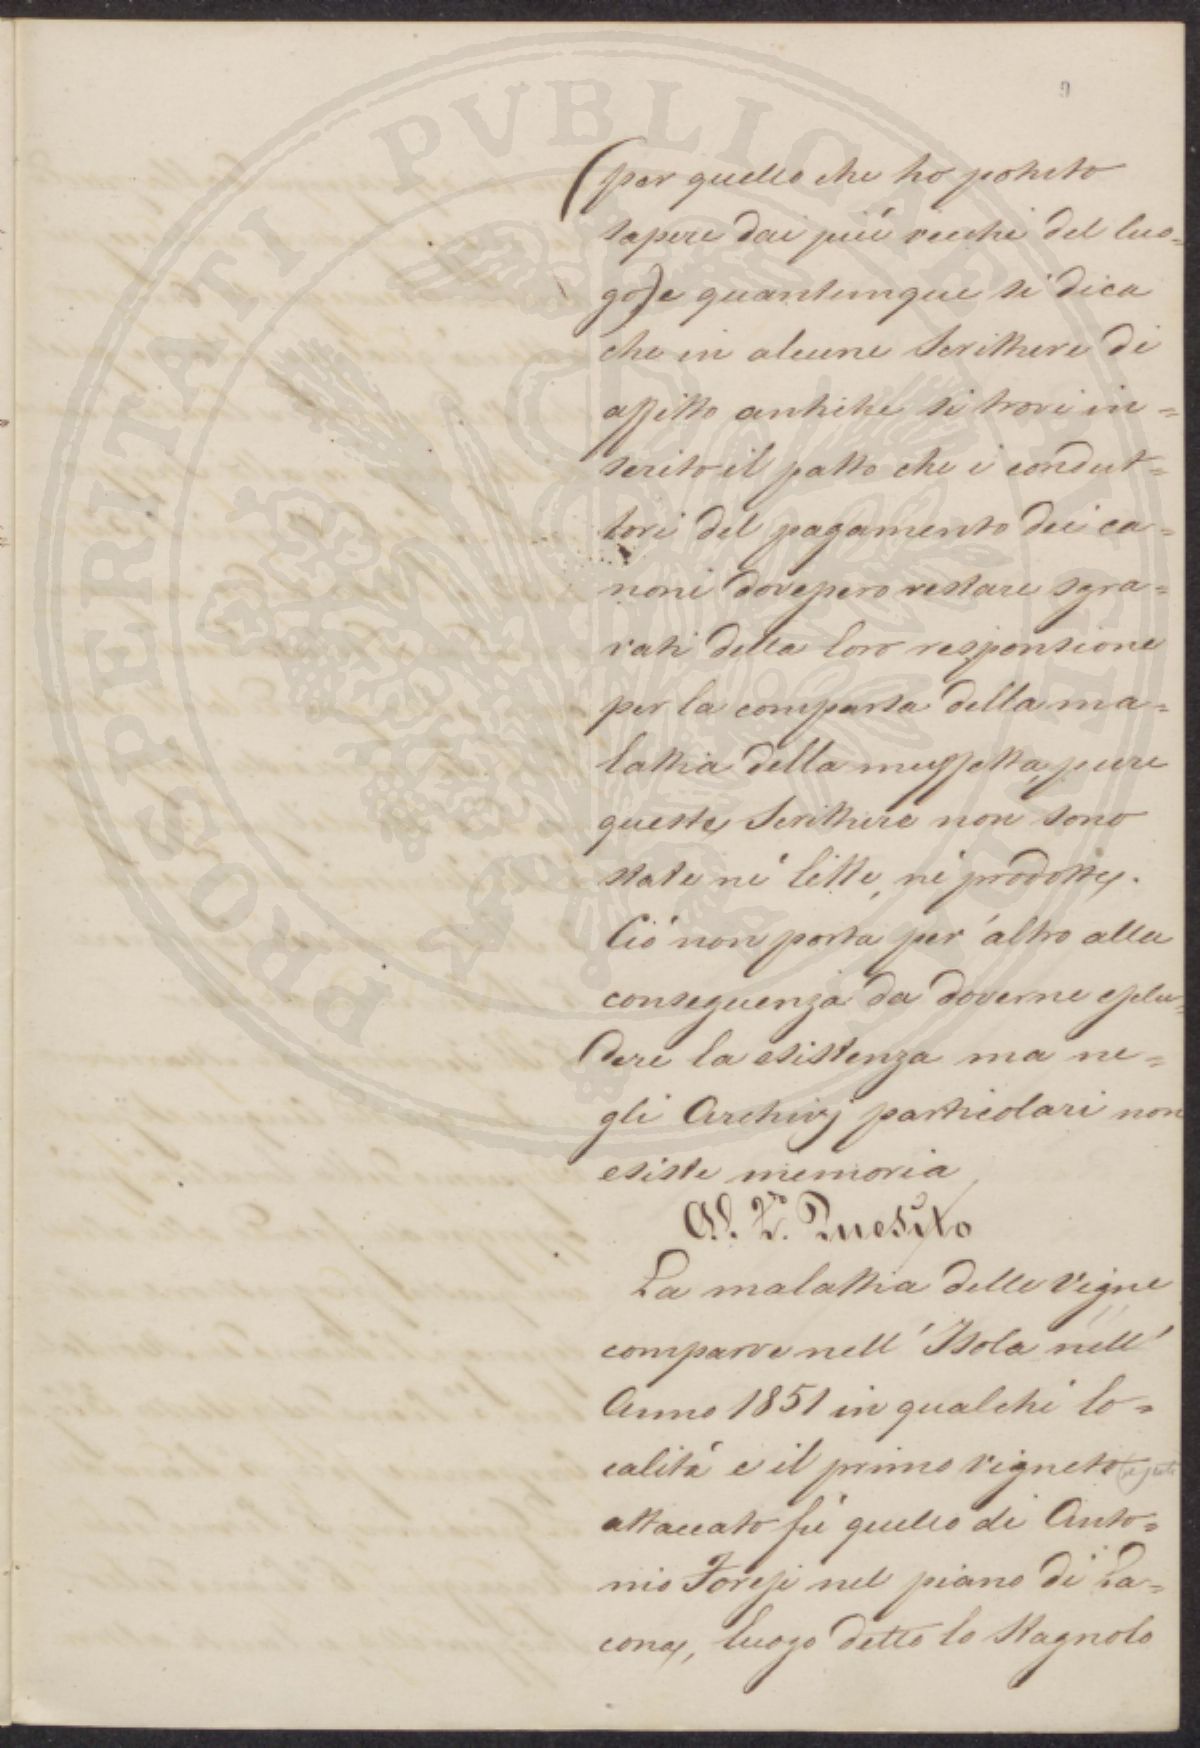 9
(per quello che ho potuto
sapere dai più vecchi del luo=
go) e quantunque si dica
che in alcune Scritture di
affitto antiche si trovi in=
serito il patto che i condut=
tori del pagamento dei ca=
noni dovessero restare sgra=
vati della loro responsione
per la comparsa della ma=
lattia della muffetta, pure
queste Scritture non sono
state né lette, né prodotte.
Ciò non porta per altro alla
conseguenza da doverne esclu=
dere la esistenza ma ne=
gli Archivj particolari non
esiste memoria
Al 2.º Quesito
La malattia delle Vigne
comparve nell' Isola nell'
Anno 1851 in qualche lo=
calità e il primo vigneto
attaccato fù quello di Anto=
nio Foresi nel piano di La=
cona, luogo detto lo Stagnolo
PROSPERITATI PVBLICAE AVGENDAE